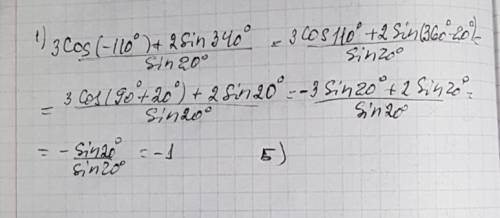 1) (3Cos(-110°) + 2Sin 340°)/(Sin 20°) = (3Cos 110° + 2Sin(360°-20°))/(Sin 20°) =
= (3Cos(90°+20°) + 2Sin 20°)/(Sin 20°) = (-3Sin 20° + 2Sin 20°)/(Sin 20°) =
= -(Sin 20°)/(Sin 20°) = -1 Б)